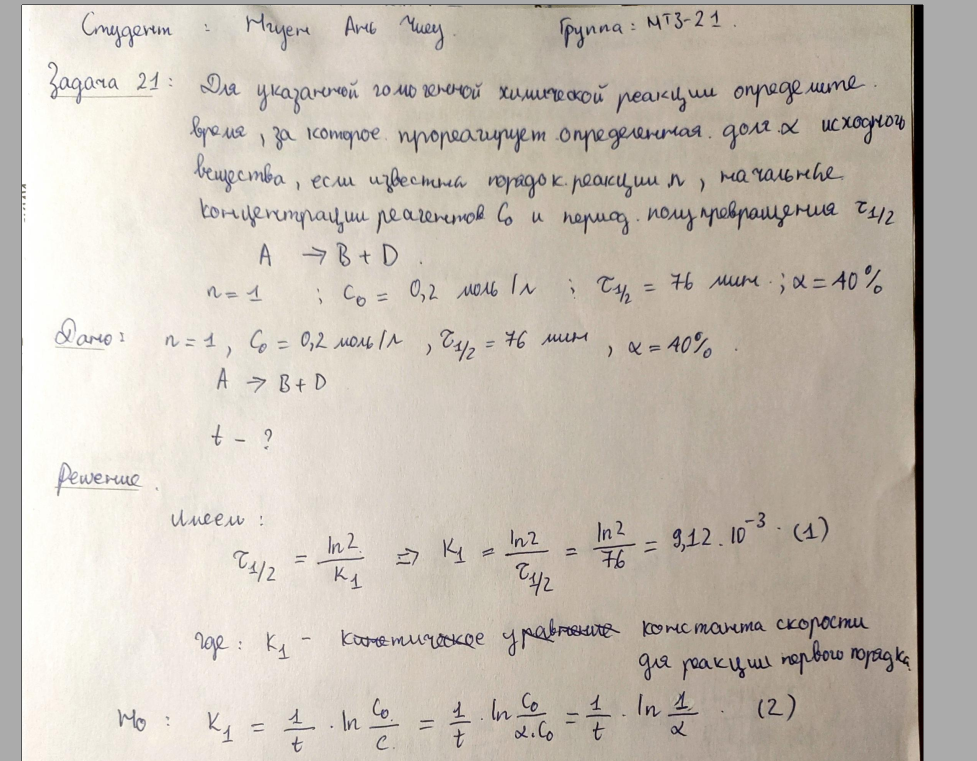 Студент : Нгуен Ань Чиеу. Группа: МТ3-21.
Задача 21: Для указанной гомогенной химической реакции определите
время, за которое прореагирует определенная доля α исходного
вещества, если известны порядок реакции n, начальные
концентрации реагентов C₀ и период полупревращения τ1/2
A → B + D.
n = 1 ; C₀ = 0,2 моль/л ; τ1/2 = 76 мин. ; α = 40%
Дано: n = 1, C₀ = 0,2 моль/л, τ1/2 = 76 мин, α = 40%.
A → B + D
t - ?
Решение.
Имеем:
τ1/2 = ln2/K₁ => K₁ = ln2/τ1/2 = ln2/76 = 9,12.10⁻³ . (1)
где: K₁ - кинетическое уравнение константа скорости
для реакции первого порядка
Но: K₁ = 1/t · ln C₀/C = 1/t · ln C₀/α.C₀ = 1/t · ln 1/α . (2)